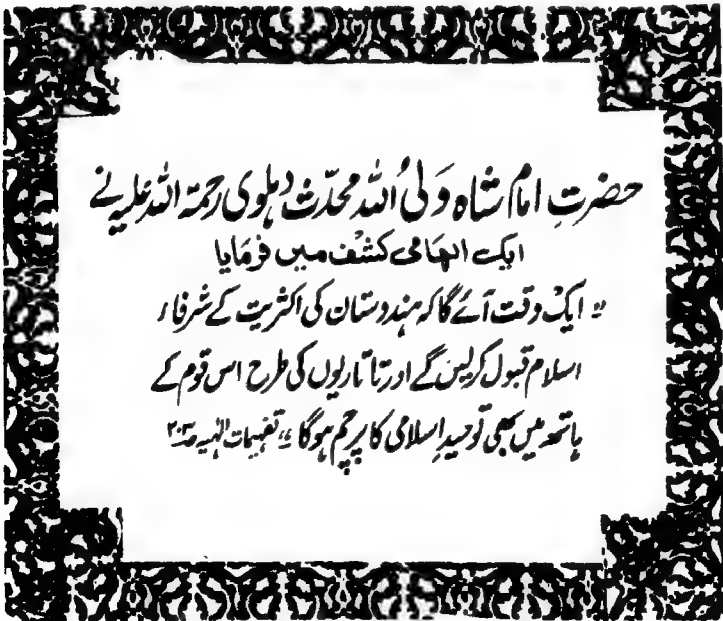 حضرتِ امام شاہ وَلیُ اللہ محدّث دہلوی رحمۃ اللہ علیہ نے
ایک الہامی کشف میں فرمایا
"ایک وقت آئے گا کہ ہندوستان کی اکثریت کے شرفاء
اسلام قبول کرلیں گے اور تاتاریوں کی طرح اس قوم کے
ہاتھ میں بھی توحیدِ اسلامی کا پرچم ہوگا" تفہیمات الٰہیہ صـ۲۰۳